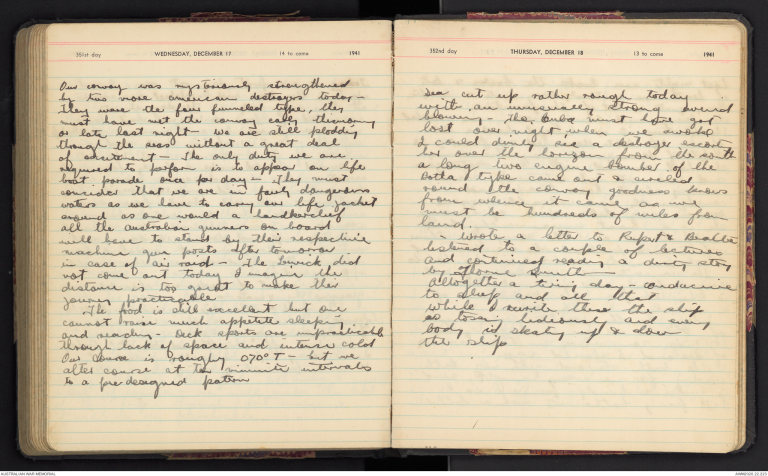 351st day WEDNESDAY, DECEMBER 17 14 to come 1941
Our convoy was mysteriously strengthened
by two more american destroyers today -
they were the four funneled type, they
must have met the convoy early this morning
or late last night - we are still plodding
through the seas without a great deal
of excitement - The only duty we are
required to perform is to appear on life
boat parade once per day. They must
consider that we are in fairly dangerous
waters as we have to carry our life jacket
around as one would a handkerchief
all the australian gunners on board
will have to stand by their respective
machine gun posts after tomorrow
in case of air raid - The did
not come out today I imagine the
distance is too great to make their
journey practicable
The food is still excellent but one
cannot raise much appetite sleeping
and reading - Deck sports are impracticable
through lack of space and intense cold
Our course is roughly 070° T - but we
alter course at ten minute intervals
to a predesigned pattern
352nd day THURSDAY, DECEMBER 18 13 to come 1941
Sea cut up rather rough today
with an unusually strong wind
blowing - The must have got
lost over night when we awoke
I could dimly see a destroyer escort
her over the horizon from the south
a long two engine bomber of the
type came out & circled
round the convoy goodness knows
from whence it came as we
must be hundreds of miles from
land.
Wrote a letter to Rupert &
listened to a couple of lectures
and continued reading a story
by Thorne Smith -
Altogether a tiring day - conducive
to sleep and all that
while I write these the ship
is tossing and every
body is skating up & down
the ship
AUSTRALIAN WAR MEMORIAL